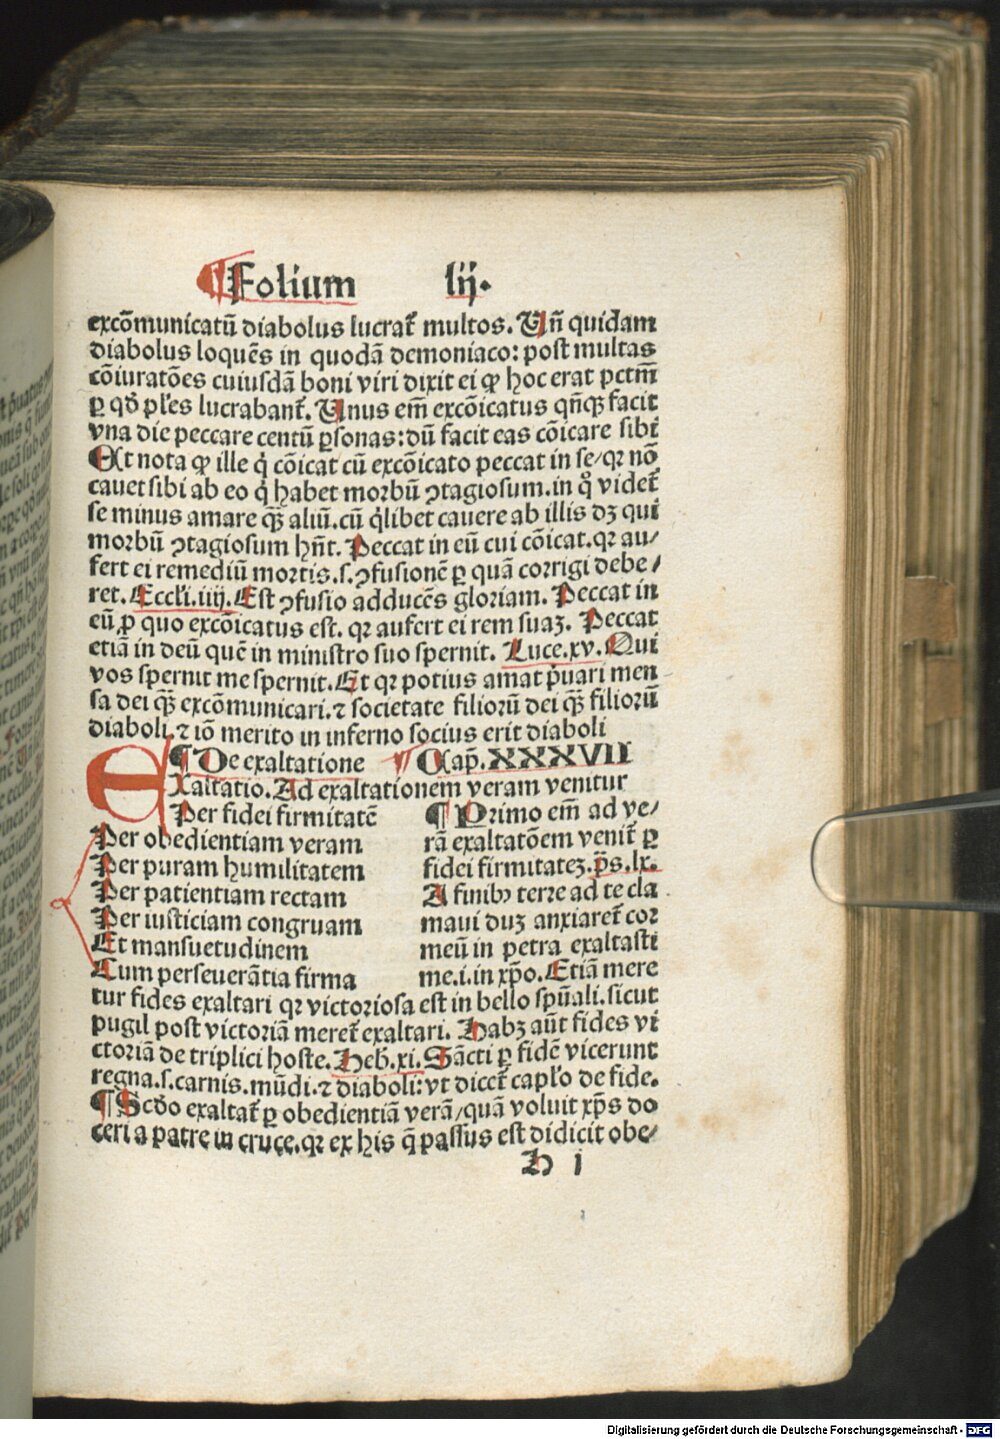 ¶Folium lij.
excōmunicatū diabolus lucrat̃ multos. Un̄ quidam
diabolus loquēs in quodā demoniaco: post multas
cōiuratōes cuiusdā boni viri dixit ei ꝙ hoc erat pctm̄
ꝑ qd̄ pl̄es lucrabant̃. Unus em̄ excōicatus qn̄qꝫ facit
vna die peccare centū ꝑsonas: dū facit eas cōicare sibi
Et nota ꝙ ille q̇ cōicat cū excōicato peccat in se/qꝛ nō
cauet sibi ab eo q̇ habet morbū ꝯtagiosum. in q̊ videt̃
se minus amare qꝫ̄ aliū. cū q̇libet cauere ab illis dꝫ qui
morbū ꝯtagiosum hn̄t. Peccat in eū cui cōicat. qꝛ au/
fert ei remediū mortis. s. ꝯfusionē ꝑ quā corrigi debe/
ret. Eccl̄i. iiij. Est ꝯfusio adducēs gloriam. Peccat in
eū ꝓ quo excōicatus est. qꝛ aufert ei rem suaꝫ. Peccat
etiā in deū quē in ministro suo spernit. Luce. xv. Qui
vos spernit me spernit. Et qꝛ potius amat p̄uari men
sa dei qꝫ̄ excōmunicari. ⁊ societate filiorū dei qꝫ̄ filiorū
diaboli. ⁊ iō merito in inferno socius erit diaboli
¶De exaltatione ¶Cap̄. XXXVII
Exaltatio. Ad exaltationem veram venitur
Per fidei firmitatē
Per obedientiam veram
Per puram humilitatem
Per patientiam rectam
Per iusticiam congruam
Et mansuetudinem
Cum perseuerātia firma
¶Primo em̄ ad ve/
rā exaltatōem venit̃ ꝑ
fidei firmitateꝫ. p̄s. lx.
A finibꝰ terre ad te cla
maui duꝫ anxiaret̃ cor
meū in petra exaltasti
me. i. in xp̄o. Etiā mere
tur fides exaltari qꝛ victoriosa est in bello spūali. sicut
pugil post victoriā meret̃ exaltari. Habꝫ aūt fides vi
ctoriā de triplici hoste. Heb̄. xi. Sācti ꝑ fidē vicerunt
regna. s. carnis. mūdi. ⁊ diaboli: vt dicet̃ capl̄o de fide.
¶Scd̄o exaltat̃ ꝑ obedientiā verā/quā voluit xp̄s do
ceri a patre in cruce. qꝛ ex his q̄ passus est didicit obe/
H i
Digitalisierung gefördert durch die Deutsche Forschungsgemeinschaft - DFG